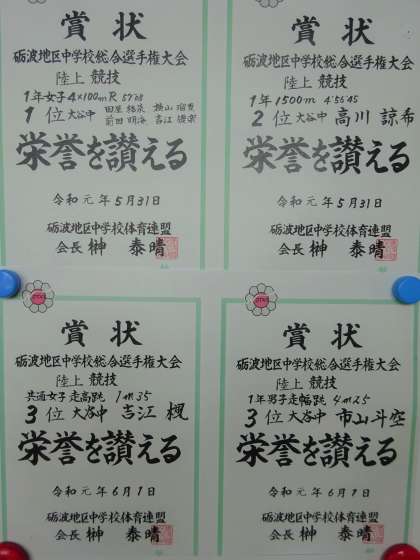 賞状
砺波地区中学校総合選手権大会
陸上競技
1年女子4×100mR 57"68
1位 大谷中
栄誉を讃える
令和元年5月31日
砺波地区中学校体育連盟
会長 榊 泰晴
賞状
砺波地区中学校総合選手権大会
陸上競技
1年1500m 4'56"45
2位 大谷中 高川 諒希
栄誉を讃える
令和元年5月31日
砺波地区中学校体育連盟
会長 榊 泰晴
賞状
砺波地区中学校総合選手権大会
陸上競技
共通女子走高跳 1m35
3位 大谷中 吉江 楓
栄誉を讃える
令和元年6月1日
砺波地区中学校体育連盟
会長 榊 泰晴
賞状
砺波地区中学校総合選手権大会
陸上競技
1年男子走幅跳 4m25
3位 大谷中 市山斗空
栄誉を讃える
令和元年6月1日
砺波地区中学校体育連盟
会長 榊 泰晴